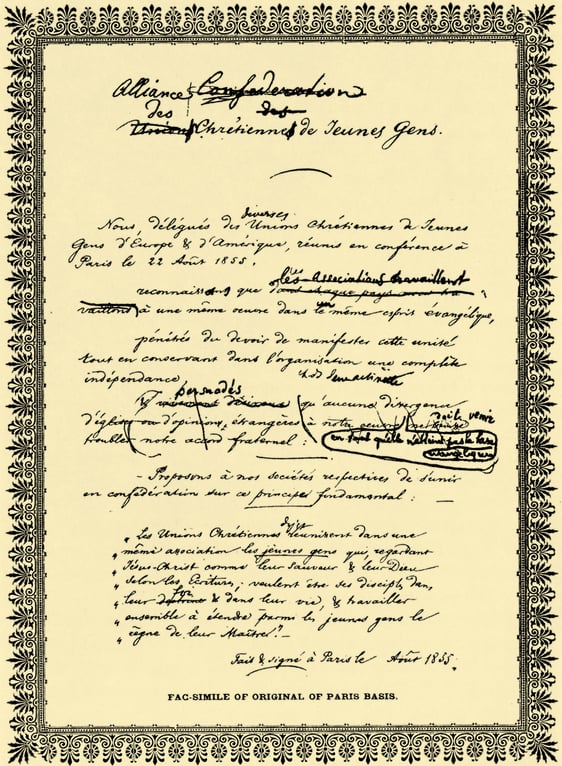 Alliance Confederation
des des
Unions Chrétiennes de Jeunes Gens.
diverses
Nous, délégués des Unions Chrétiennes de Jeunes
Gens d'Europe & d'Amérique, réunis en conférence à
Paris le 22 Août 1855,
les Associations travaillent
reconnaissant que
vaillons à une même oeuvre dans le même esprit évangélique,
pénétrés du devoir de manifester cette unité
tout en conservant dans l'organisation une complète
indépendance
persuadés
& qu'aucune divergence
doive venir
d'église ou d'opinions, étrangères à notre oeuvre
troubler notre accord fraternel :
évangélique
- Proposons à nos sociétés respectives de s'unir
en confédération sur ce principe fondamental : —
„ Les Unions Chrétiennes réunissent dans une
„ même association les jeunes gens qui regardant
„ Jésus-Christ comme leur Sauveur & leur Dieu
„ selon les Ecritures, veulent être ses disciples dans
foi
„ leur doctrine & dans leur vie, & travailler
„ ensemble à étendre parmi les jeunes gens le
„ règne de leur Maître." —
Fait & signé à Paris le Août 1855.
FAC-SIMILE OF ORIGINAL OF PARIS BASIS.